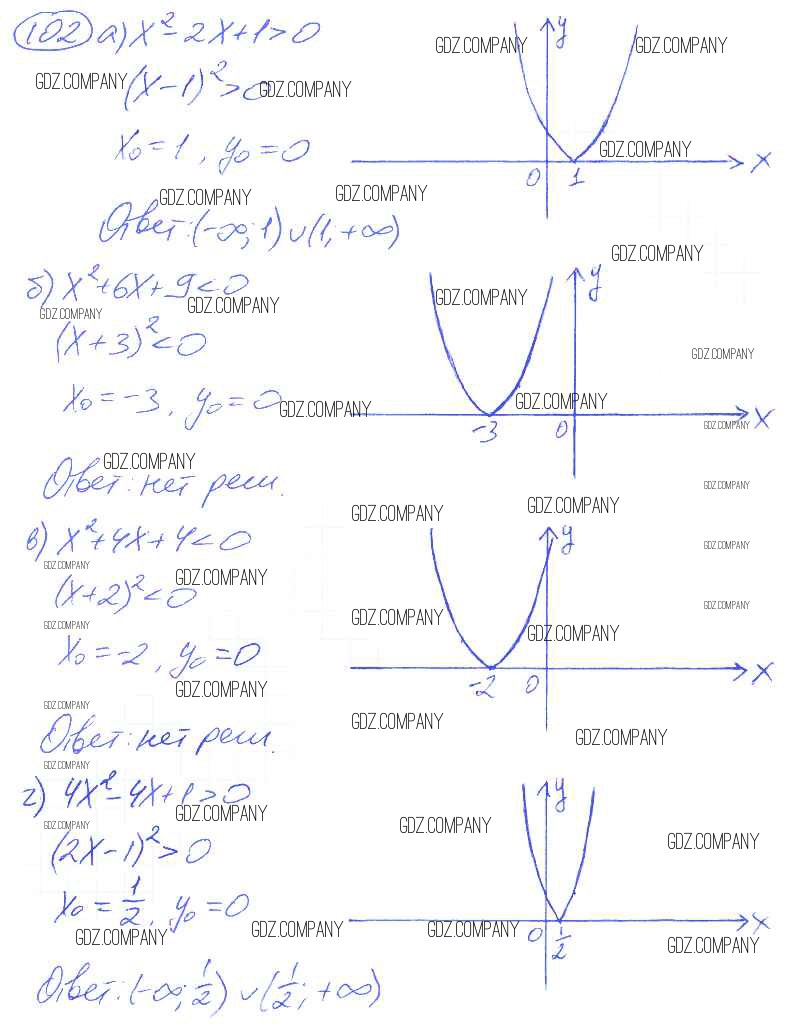 102 а) x² - 2x + 1 > 0
y
GDZ.COMPANY GDZ.COMPANY
GDZ.COMPANY (x - 1)² > 0 GDZ.COMPANY
x₀ = 1, y₀ = 0
GDZ.COMPANY
0 1 x
GDZ.COMPANY GDZ.COMPANY
Ответ: (-∞; 1) ∪ (1, +∞)
GDZ.COMPANY
б) x² + 6x + 9 < 0
y
GDZ.COMPANY GDZ.COMPANY GDZ.COMPANY
(x + 3)² < 0
GDZ.COMPANY
x₀ = -3, y₀ = 0 GDZ.COMPANY GDZ.COMPANY
-3 0 x
GDZ.COMPANY
GDZ.COMPANY
Ответ: нет реш.
GDZ.COMPANY
GDZ.COMPANY GDZ.COMPANY
в) x² + 4x + 4 < 0
y
GDZ.COMPANY
GDZ.COMPANY GDZ.COMPANY
(x + 2)² < 0
GDZ.COMPANY
GDZ.COMPANY GDZ.COMPANY GDZ.COMPANY
x₀ = -2, y₀ = 0
-2 0 x
GDZ.COMPANY
GDZ.COMPANY
GDZ.COMPANY
Ответ: нет реш.
GDZ.COMPANY
GDZ.COMPANY
г) 4x² - 4x + 1 > 0
y
GDZ.COMPANY
GDZ.COMPANY GDZ.COMPANY
GDZ.COMPANY
(2x - 1)² > 0
x₀ = 1/2, y₀ = 0
0 1/2 x
GDZ.COMPANY GDZ.COMPANY GDZ.COMPANY
GDZ.COMPANY
Ответ: (-∞; 1/2) ∪ (1/2; +∞)